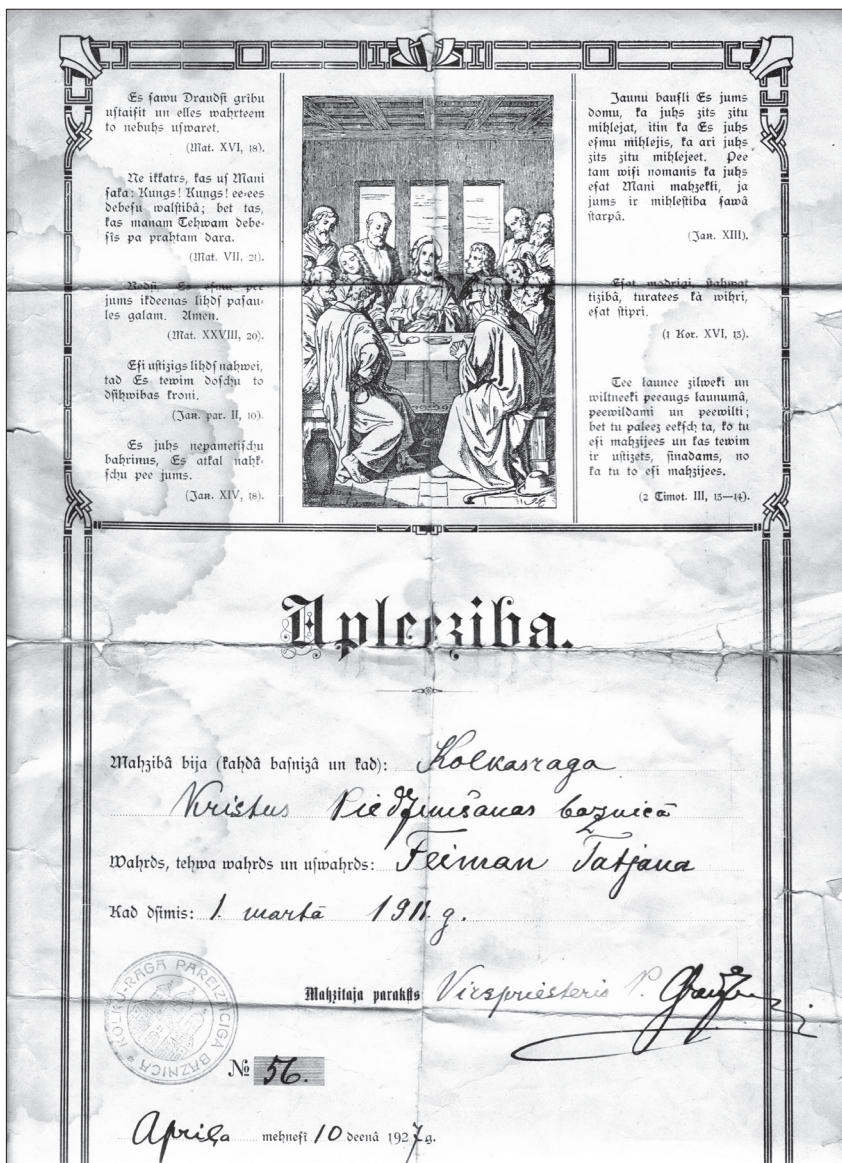 Es ſawu Draudſi gribu
uſtaiſit un elles wahrteem
to nebuhs uſwaret.
(Mat. XVI, 18).
Ne ikkatrs, kas uſ Mani
ſaka: Kungs! Kungs! ee-ees
debeſu walſtibâ; bet tas,
kas manam Tehwam debe-
ſis pa prahtam dara.
(Mat. VII, 21).
Redſi, Es eſmu pee
jums ikdeenas lihdſ paſau-
les galam. Amen.
(Mat. XXVIII, 20).
Eſi uſtizigs lihdſ nahwei,
tad Es tewim doſchu to
dſihwibas kroni.
(Jan. par. II, 10).
Es juhs nepametiſchu
bahrinus, Es atkal nahk-
ſchu pee jums.
(Jan. XIV, 18).
Jaunu bauſli Es jums
domu, ka juhs zits zitu
mihlejat, itin ka Es juhs
eſmu mihlejis, ka ari juhs
zits zitu mihlejeet. Pee
tam wiſi nomanis ka juhs
eſat Mani mahzekli, ja
jums ir mihleſtiba ſawâ
ſtarpâ.
(Jan. XIII).
Eſat modrigi, ſtahwat
tizibâ, turatees kà wihri,
eſat ſtipri.
(1 Kor. XVI, 13).
Tee launee zilweki un
wiltneeki peeaugs launumâ,
peewildami un peewilti;
bet tu paleez eekſch ta, ko tu
eſi mahzijees un kas tewim
ir uſtizets, ſinadams, no
ka tu to eſi mahzijees.
(2 Timot. III, 13—14).
Apleeziba.
Mahzibâ bija (kahdâ baſnizâ un kad): Kolkasraga
Kristus Piedzimšanas baznicā
Wahrds, tehwa wahrds un uſwahrds: Feiman Tatjana
Kad dſimis: 1. martā 1911. g.
Mahzitaja parakſts Virspriesteris P.
KOLKU-RAGA PAREIZTICIGA BAZNICA
№ 56.
Apriļa mehneſi 10 deenâ 1927 g.